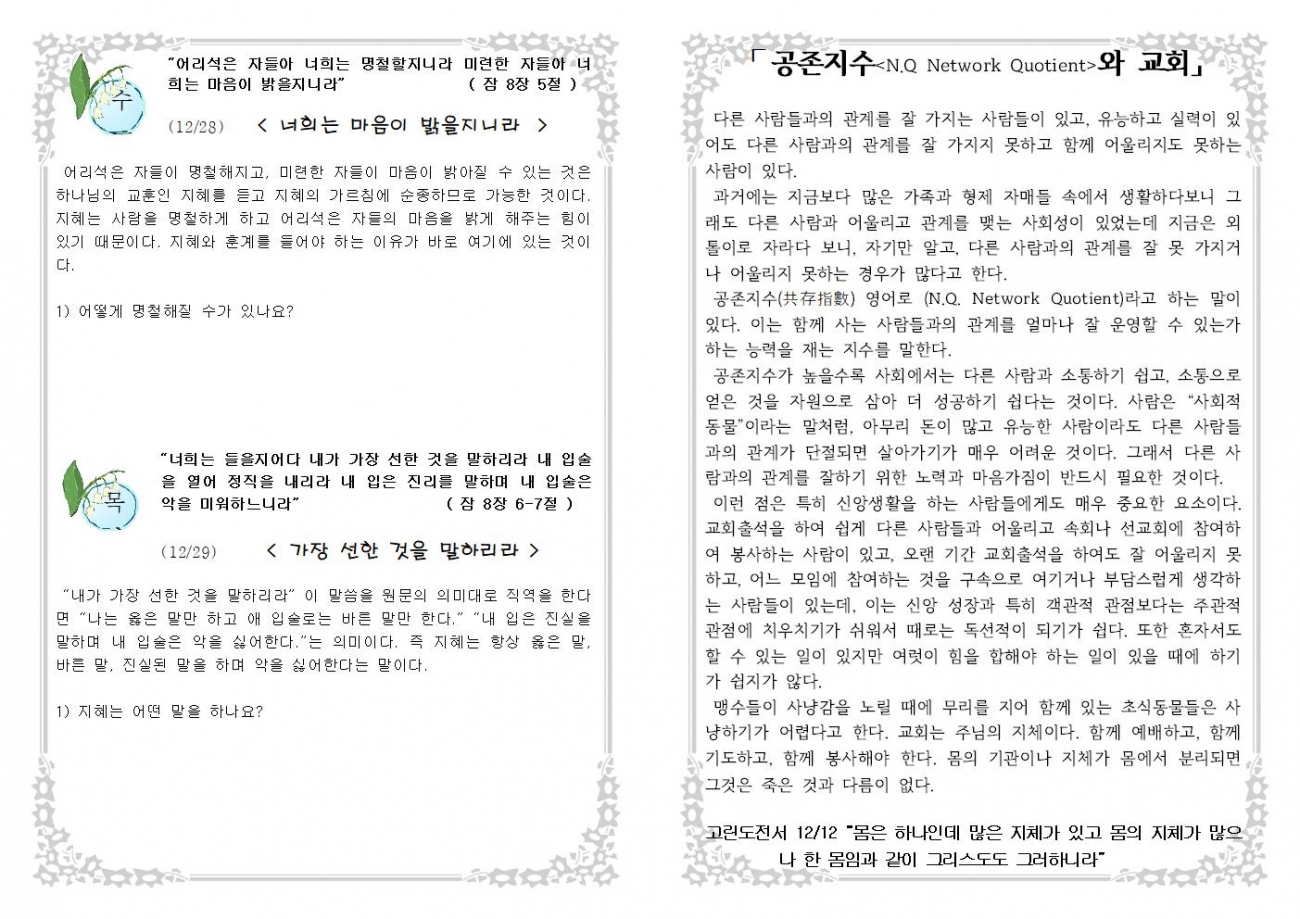 “어리석은 자들아 너희는 명철할지니라 미련한 자들아 너
희는 마음이 밝을지니라” ( 잠 8장 5절 )
수
(12/28) < 너희는 마음이 밝을지니라 >
어리석은 자들이 명철해지고, 미련한 자들이 마음이 밝아질 수 있는 것은
하나님의 교훈인 지혜를 듣고 지혜의 가르침에 순종하므로 가능한 것이다.
지혜는 사람을 명철하게 하고 어리석은 자들의 마음을 밝게 해주는 힘이
있기 때문이다. 지혜와 훈계를 들어야 하는 이유가 바로 여기에 있는 것이
다.
1) 어떻게 명철해질 수가 있나요?
“너희는 들을지어다 내가 가장 선한 것을 말하리라 내 입술
을 열어 정직을 내리라 내 입은 진리를 말하며 내 입술은
악을 미워하느니라” ( 잠 8장 6-7절 )
목
(12/29) < 가장 선한 것을 말하리라 >
“내가 가장 선한 것을 말하리라” 이 말씀을 원문의 의미대로 직역을 한다
면 “나는 옳은 말만 하고 애 입술로는 바른 말만 한다.” “내 입은 진실을
말하며 내 입술은 악을 싫어한다.”는 의미이다. 즉 지혜는 항상 옳은 말,
바른 말, 진실된 말을 하며 악을 싫어한다는 말이다.
1) 지혜는 어떤 말을 하나요?
「공존지수<N.Q Network Quotient>와 교회」
다른 사람들과의 관계를 잘 가지는 사람들이 있고, 유능하고 실력이 있
어도 다른 사람과의 관계를 잘 가지지 못하고 함께 어울리지도 못하는
사람이 있다.
과거에는 지금보다 많은 가족과 형제 자매들 속에서 생활하다보니 그
래도 다른 사람과 어울리고 관계를 맺는 사회성이 있었는데 지금은 외
톨이로 자라다 보니, 자기만 알고, 다른 사람과의 관계를 잘 못 가지거
나 어울리지 못하는 경우가 많다고 한다.
공존지수(共存指數) 영어로 (N.Q. Network Quotient)라고 하는 말이
있다. 이는 함께 사는 사람들과의 관계를 얼마나 잘 운영할 수 있는가
하는 능력을 재는 지수를 말한다.
공존지수가 높을수록 사회에서는 다른 사람과 소통하기 쉽고, 소통으로
얻은 것을 자원으로 삼아 더 성공하기 쉽다는 것이다. 사람은 “사회적
동물”이라는 말처럼, 아무리 돈이 많고 유능한 사람이라도 다른 사람들
과의 관계가 단절되면 살아가기가 매우 어려운 것이다. 그래서 다른 사
람과의 관계를 잘하기 위한 노력과 마음가짐이 반드시 필요한 것이다.
이런 점은 특히 신앙생활을 하는 사람들에게도 매우 중요한 요소이다.
교회출석을 하여 쉽게 다른 사람들과 어울리고 속회나 선교회에 참여하
여 봉사하는 사람이 있고, 오랜 기간 교회출석을 하여도 잘 어울리지 못
하고, 어느 모임에 참여하는 것을 구속으로 여기거나 부담스럽게 생각하
는 사람들이 있는데, 이는 신앙 성장과 특히 객관적 관점보다는 주관적
관점에 치우치기가 쉬워서 때로는 독선적이 되기가 쉽다. 또한 혼자서도
할 수 있는 일이 있지만 여럿이 힘을 합해야 하는 일이 있을 때에 하기
가 쉽지가 않다.
맹수들이 사냥감을 노릴 때에 무리를 지어 함께 있는 초식동물들은 사
냥하기가 어렵다고 한다. 교회는 주님의 지체이다. 함께 예배하고, 함께
기도하고, 함께 봉사해야 한다. 몸의 기관이나 지체가 몸에서 분리되면
그것은 죽은 것과 다름이 없다.
고린도전서 12/12 “몸은 하나인데 많은 지체가 있고 몸의 지체가 많으
나 한 몸임과 같이 그리스도도 그러하니라”